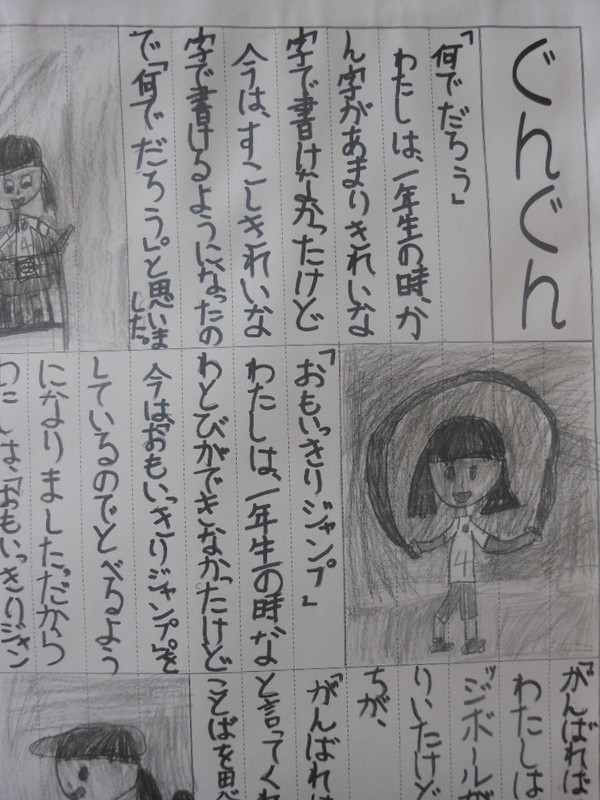 ぐんぐん
「何でだろう」
わたしは、一年生の時、か
ん字があまりきれいな
字で書けなかったけど
今は、すこしきれいな
字で書けるようになったの
で「何でだろう。」と思いま
した。
「おもいっきりジャンプ」
わたしは、一年生の時な
わとびができなかったけど
今は「おもいっきりジャンプ」を
しているのでとべるよう
になりました。だから
わたしは、「おもいっきりジャン
「がんばれば
わたしは
ジボールが
りいたけど
ちが、
「がんばれ
と言ってくれ
ことばを